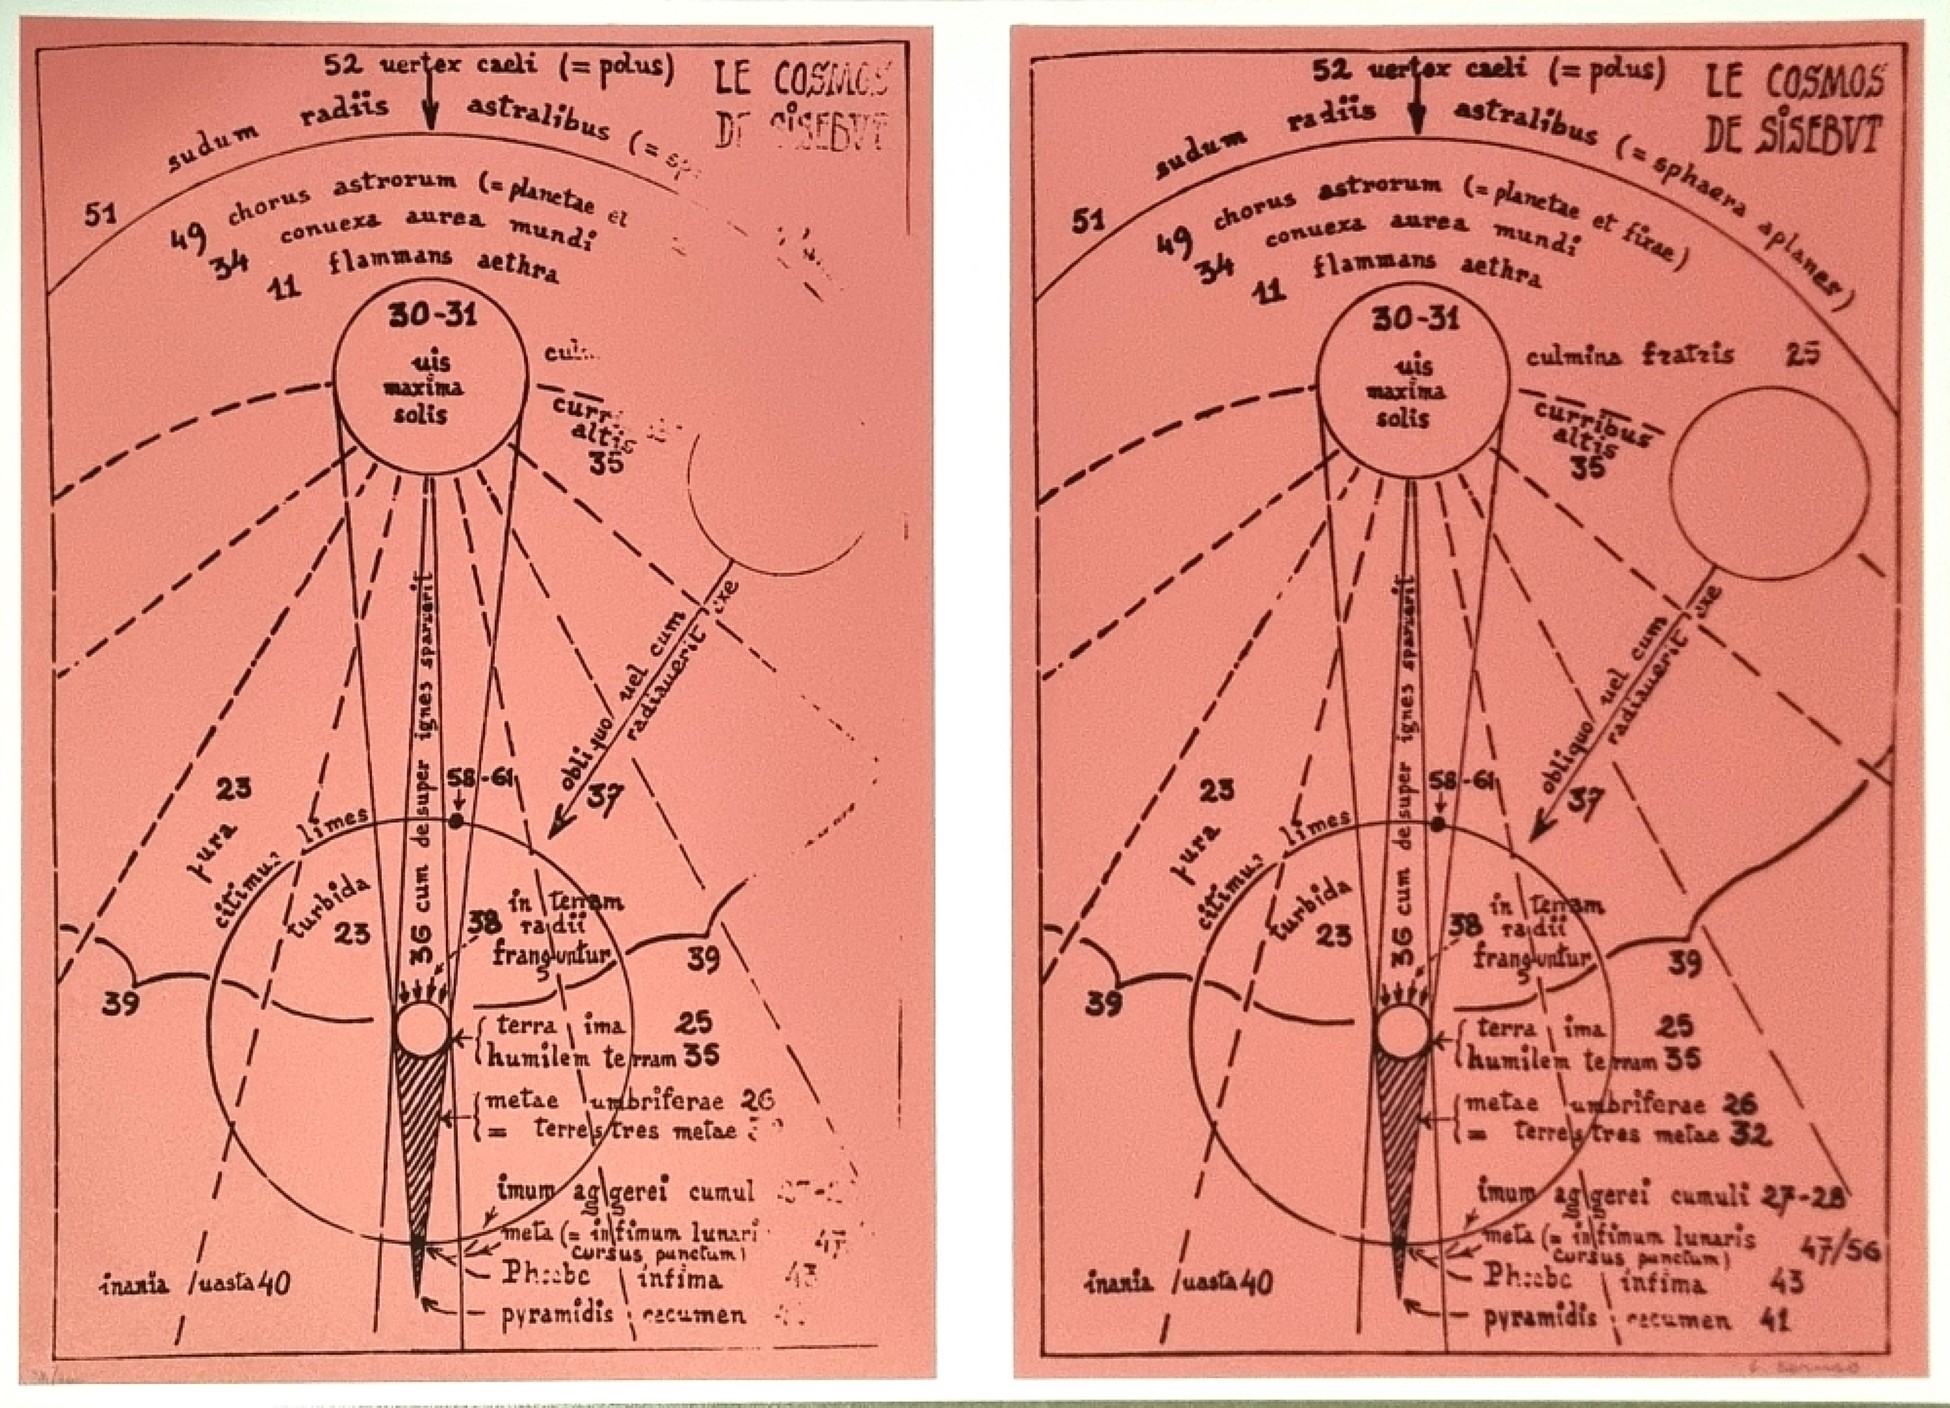 52 uertex caeli (= polus)
LE COSMOS
DE SISEBVT
sudum radiis astralibus (=
51
49 chorus astrorum (= planetae et
34 conuexa aurea mundi
11 flammans aethra
30-31
uis
maxima
solis
altis
35
58-61
obliquo uel cum
radiauerit
37
36 cum desuper ignes sparserit
23
pura
citimus limes
turbida
23
38 in terram
radii
franguntur
5
39
39
terra ima 25
humilem terram 35
metae umbriferae 26
= terrestres metae
imum aggerei cumul
meta (= infimum lunari 47
cursus punctum)
Phoebe infima 43
inania uasta 40
pyramidis cecumen
52 uertex caeli (= polus)
LE COSMOS
DE SISEBVT
sudum radiis astralibus (= sphaera aplanes)
51
49 chorus astrorum (= planetae et fixae)
34 conuexa aurea mundi
11 flammans aethra
30-31
uis
maxima
solis
culmina fratris 25
curribus
altis
35
58-61
obliquo uel cum
radiauerit axe
37
36 cum desuper ignes sparserit
23
pura
citimus limes
turbida
23
38 in terram
radii
franguntur
5
39
39
terra ima 25
humilem terram 35
metae umbriferae 26
= terrestres metae 32
imum aggerei cumuli 27-28
meta (= infimum lunaris 47/56
cursus punctum)
Phoebe infima 43
inania uasta 40
pyramidis cecumen 41